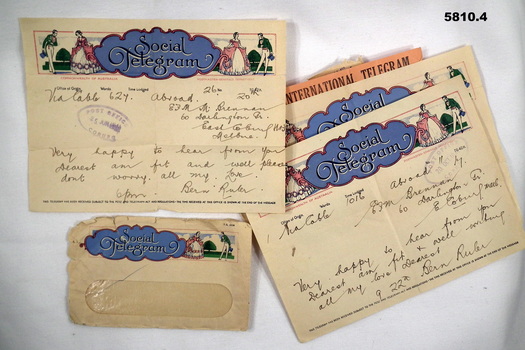 5810.4
Social
Telegram
COMMONWEALTH OF AUSTRALIA
Office of Origin Words Time Lodged
Via Cable 627. Abroad. 26
EFM M. Brennan
60 Darlington St.
East Coburg
Melbne.
POST OFFICE
COBURG
Very happy to hear from you
Dearest am fit and well please
dont worry, all my love.
Bern Ruler
6pm
Social
Telegram
INTERNATIONAL TELEGRAM
Social
Social
Telegram
Via Cable 1076 Abroad
EFM Brennan
60 Darlington St
E. Coburg
Very happy to hear from you
Dearest am fit & well writing
all my love Dearest
9.22 Bern Ruler